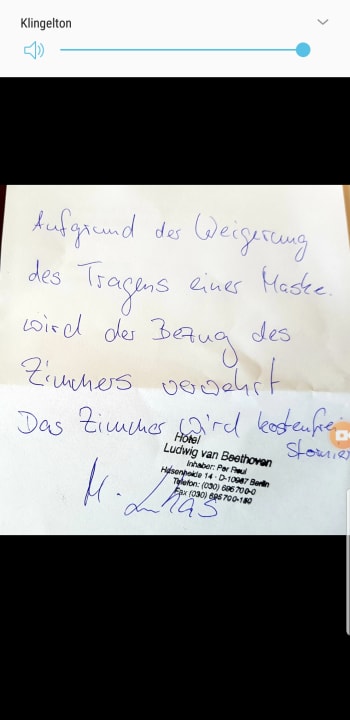 Klingelton
Aufgrund der Weigerung
des Tragens einer Maske.
wird der Bezug des
Zimmers verwehrt
Das Zimmer wird kostenfrei
stornier
Hotel
Ludwig van Beethoven
Inhaber: Per Paul
Hasenheide 14 · D-10967 Berlin
Telefon: (030) 695 700-0
Fax (030) 695 700-150
M.